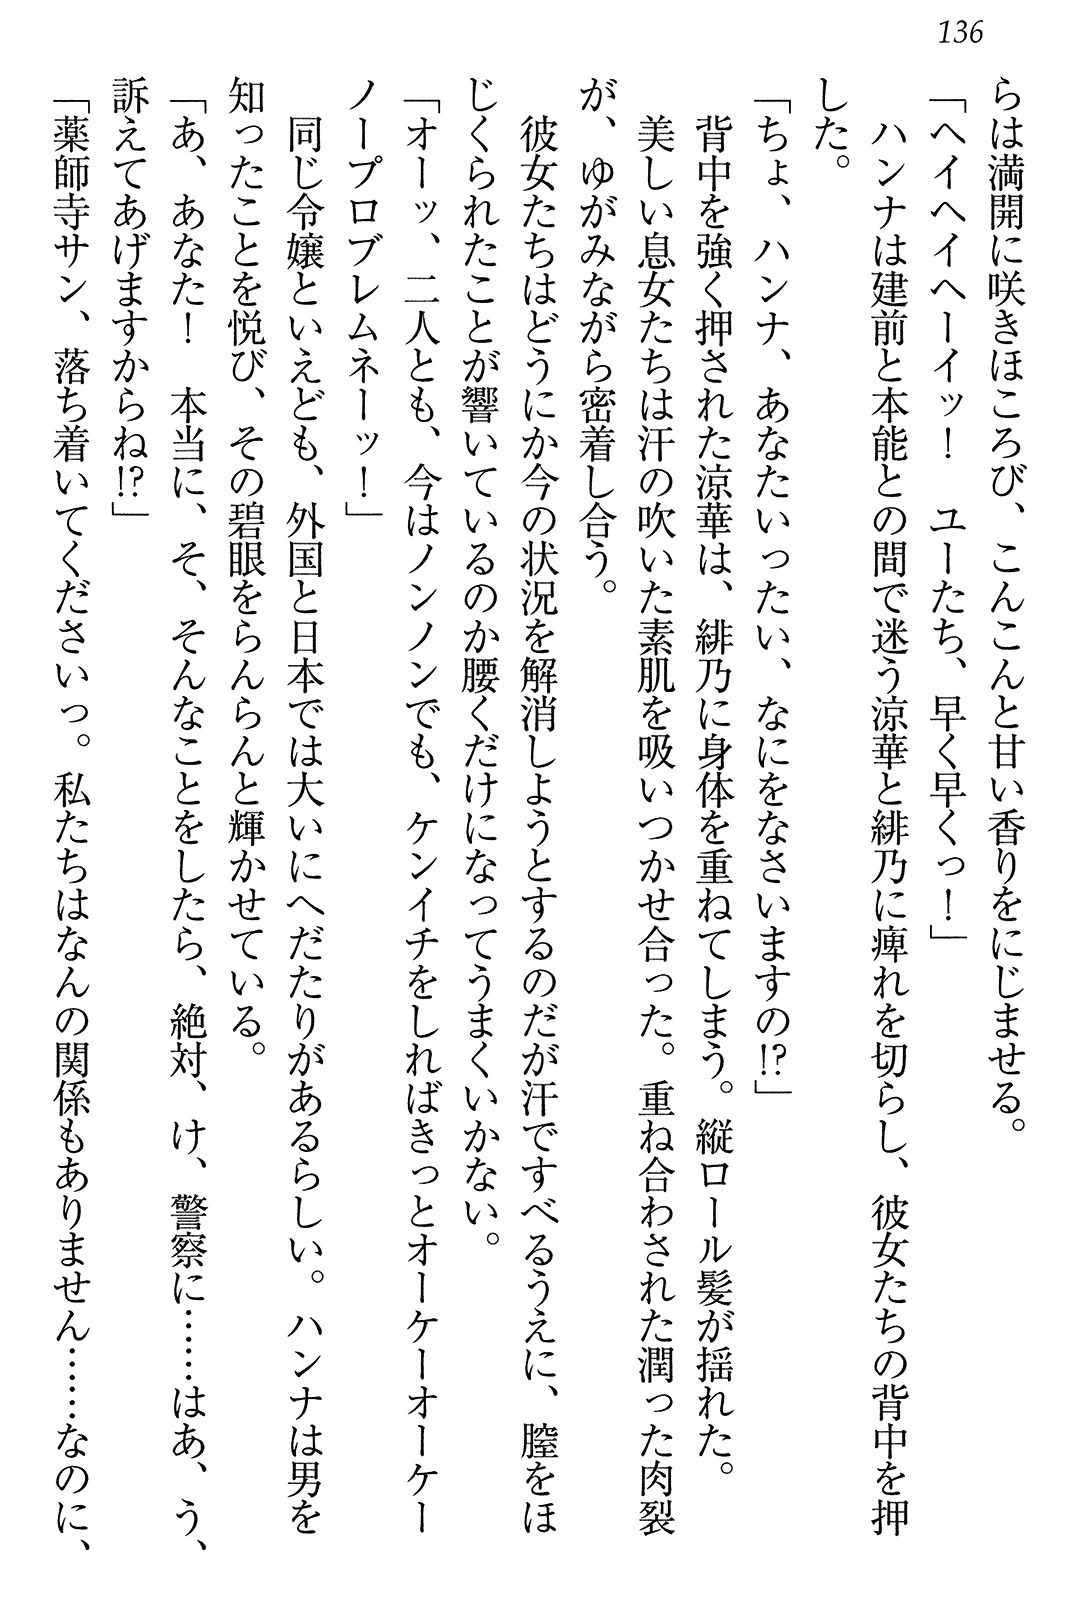 136
らは満開に咲きほころび、こんこんと甘い香りをにじませる。
「ヘイヘイヘーイッ！　ユーたち、早く早くっ！」
　ハンナは建前と本能との間で迷う涼華と緋乃に痺れを切らし、彼女たちの背中を押
した。
「ちょ、ハンナ、あなたいったい、なにをなさいますの!?」
　背中を強く押された涼華は、緋乃に身体を重ねてしまう。縦ロール髪が揺れた。
　美しい息女たちは汗の吹いた素肌を吸いつかせ合った。重ね合わされた潤った肉裂
が、ゆがみながら密着し合う。
　彼女たちはどうにか今の状況を解消しようとするのだが汗ですべるうえに、膣をほ
じくられたことが響いているのか腰くだけになってうまくいかない。
「オーッ、二人とも、今はノンノンでも、ケンイチをしればきっとオーケーオーケー
ノープロブレムネーッ！」
　同じ令嬢といえども、外国と日本では大いにへだたりがあるらしい。ハンナは男を
知ったことを悦び、その碧眼をらんらんと輝かせている。
「あ、あなた！　本当に、そ、そんなことをしたら、絶対、け、警察に……はあ、う、
訴えてあげますからね!?」
「薬師寺サン、落ち着いてくださいっ。私たちはなんの関係もありません……なのに、